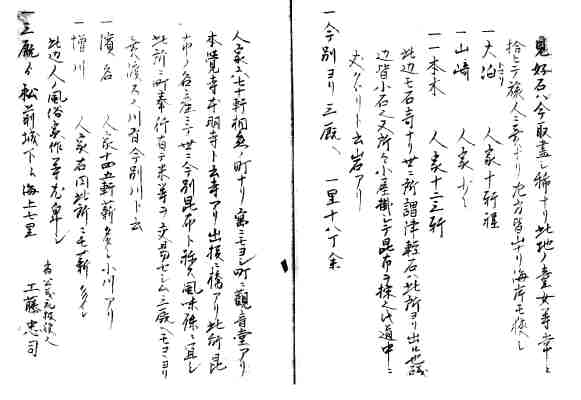 見好石ハ今取盡シ稀ナリ此地ノ童女等常ニ
拾ヒテ旅人ニ売ナリ左方皆山ナリ海岸モ狭シ
一大泊 人家十軒程
一山崎 人家少シ
一一本木 人家十二三軒
此辺モ石奇ナリ世ニ所謂津軽石ハ此所ヨリ出ル
辺皆小石也又所々小屋掛シテ昆布ヲ採ル也道中ニ
丈クヾリト云岩アリ
一今別ヨリ三厩ヘ 一里十八丁余
人家六七十軒相應ノ町ナリ富ニモヨシ町ニ観音堂アリ
本覺寺本明寺ト云寺アリ出口橋アリ此所昆
布ノ名産ニテ世ニ今別昆布ト称ス風味殊ニ宜シ
此所ニ町奉行有テ米等ヲ交易セシム三厩ヘモヨリ
長濱スヘ川皆今別川ト云
一濱名 人家十四五軒薪多シ小川アリ
一増川 人家右同此所ニモ薪多シ
此辺人ノ風俗家作等尤卑シ
一三厩ヨリ松前城下ヘ海上七里
工藤忠司